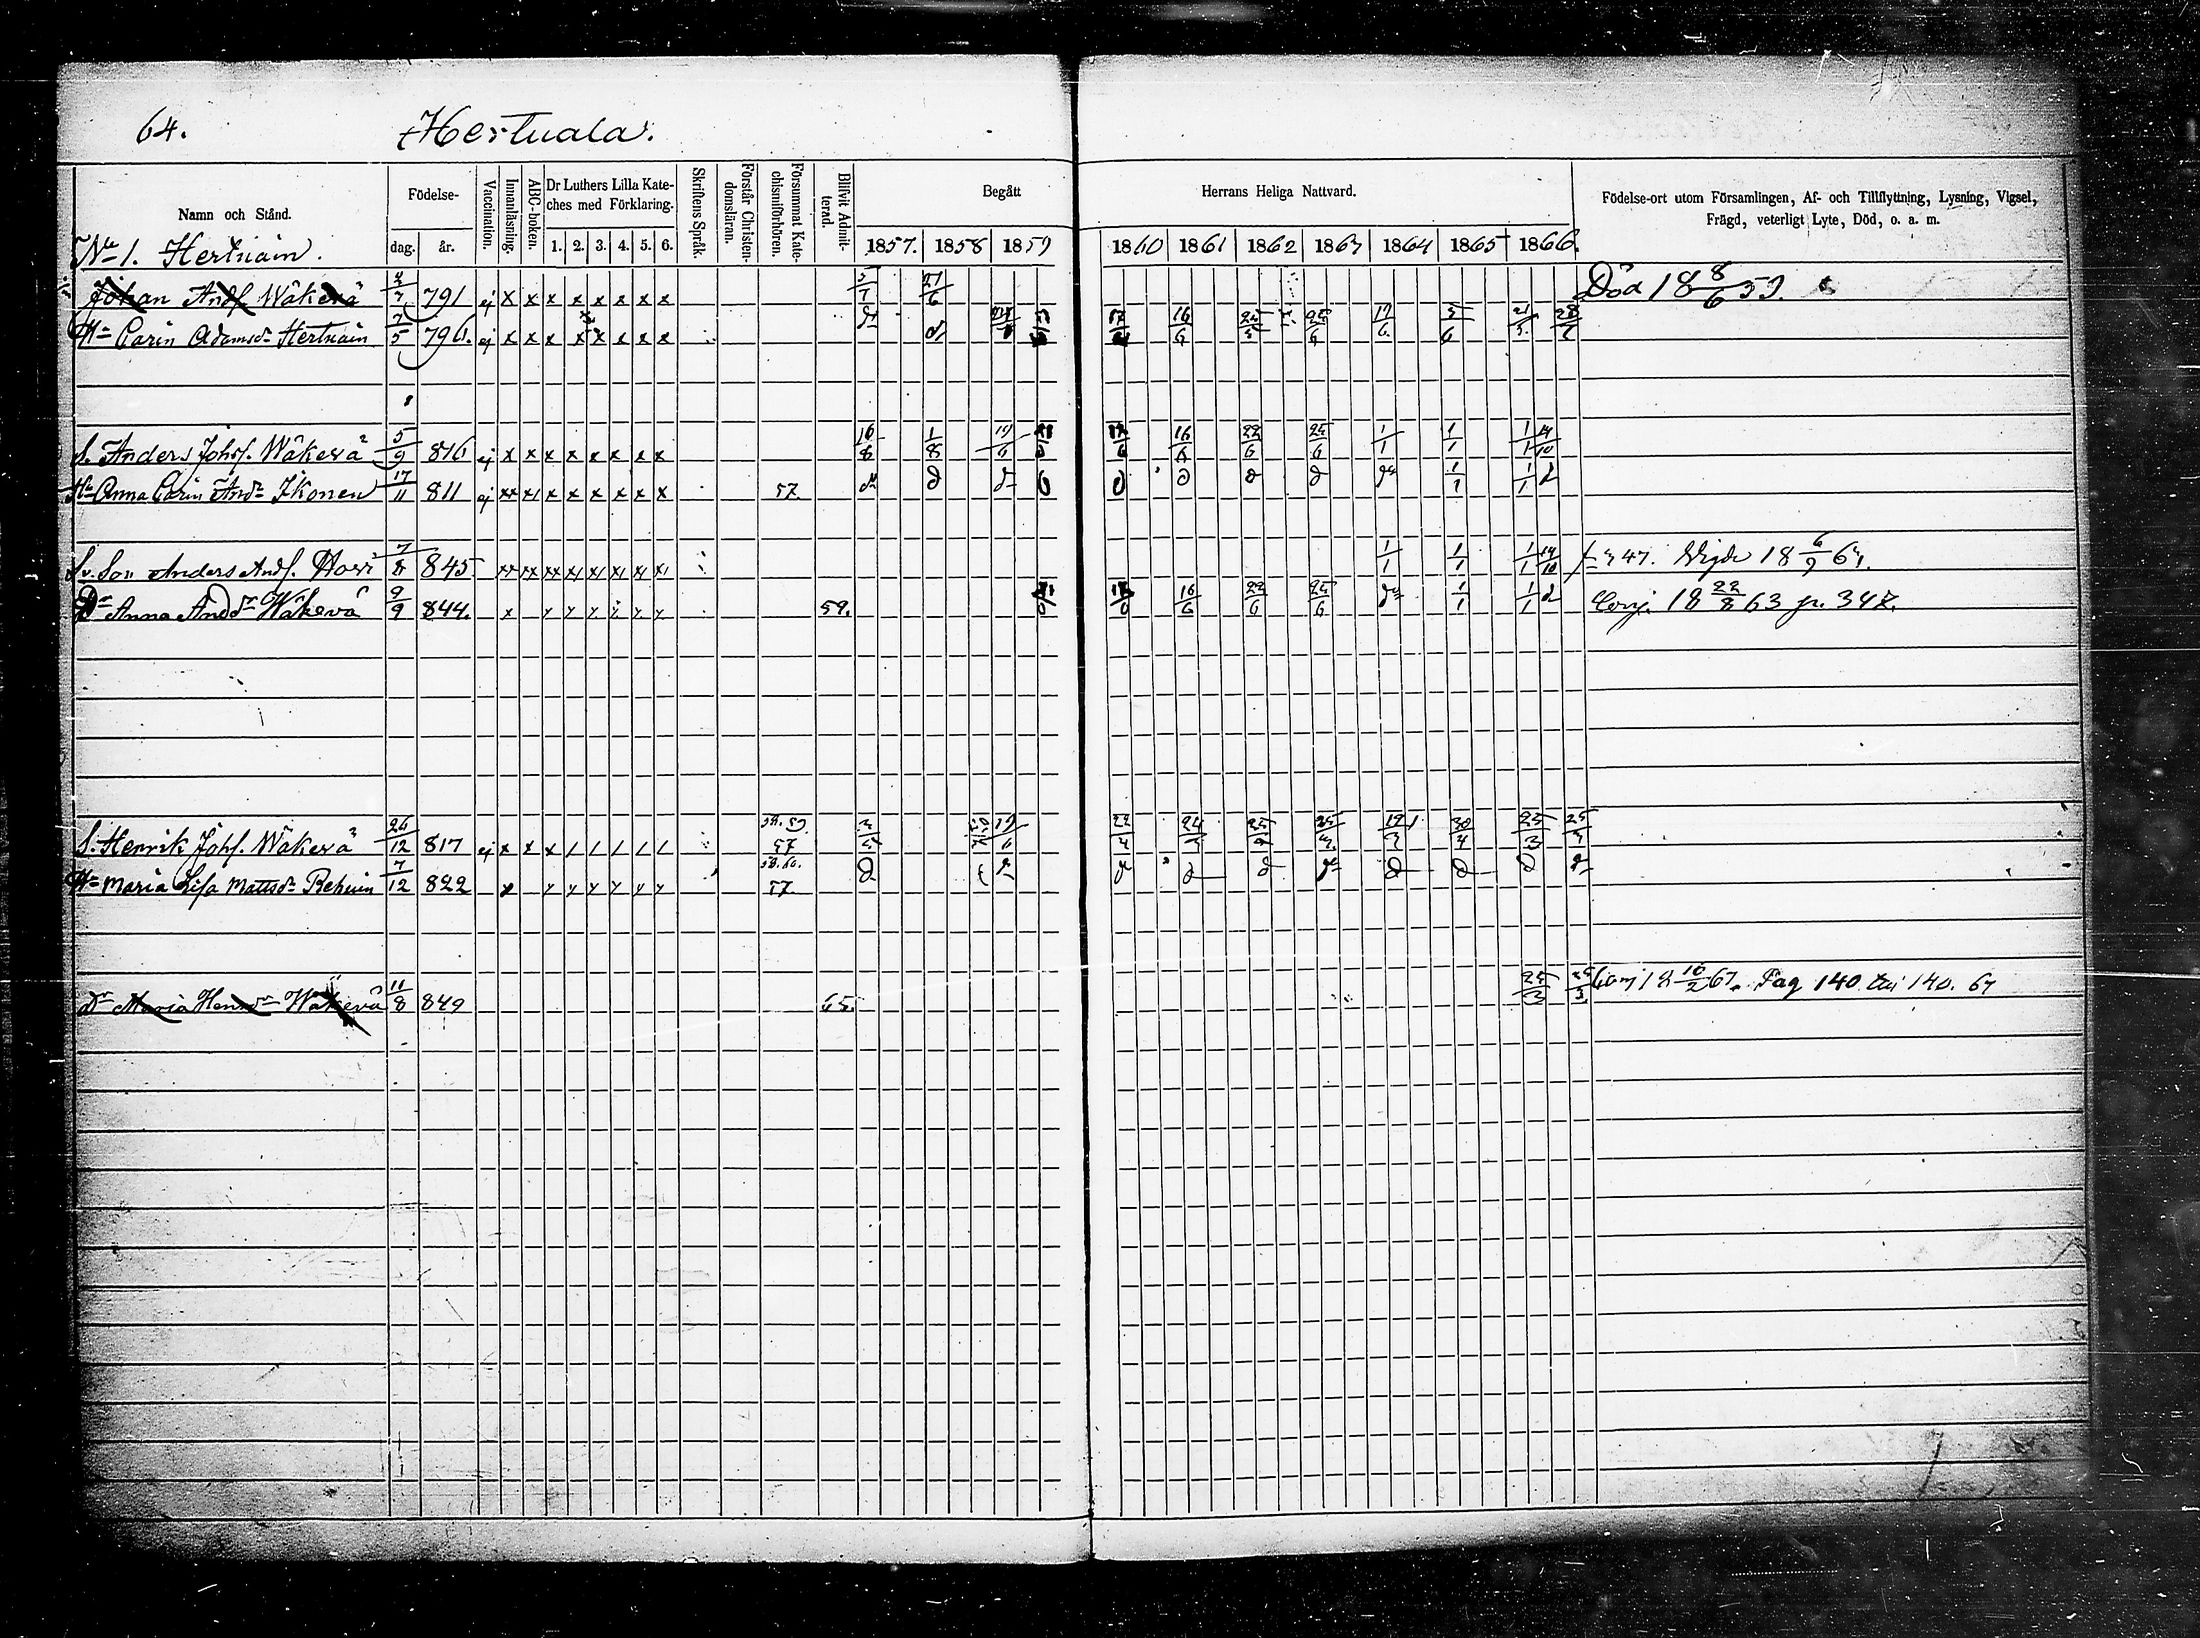 64. Hertuala.
Namn och Stånd. Födelse- dag. år. Vaccination. Innanläsning. ABC-boken. Dr Luthers Lilla Kateches med Förklaring. 1. 2. 3. 4. 5. 6. Skriftens Språk. Förstår Christendomsläran. Försummat Katechismiförhören. Blifvit Admitterad. Begått Herrans Heliga Nattvard. 1857. 1858 1859 1860 1861 1862 1863 1864 1865 1866. Födelse-ort utom Församlingen, Af- och Tillflyttning, Lysning, Vigsel, Frägd, veterligt Lyte, Död, o. a. m.
No 1. Hertuain.
Johan Andf. Wäkevä 791 ej x x x x x x x x 27/6 Död 18 8/6 59.
Hu Carin Adamsdr Hertuain 7/5 796. ej x x x x x x x x 16/6 25/6 17/6 5/6
S. Anders Johsf. Wäkevä 5/9 816 ej x x x x x x x x 16/6 1/8 19/6 16/6 22/6 25/6 1/1 1/1 1/1 14/10
Hu Anna Carin Andr Ikonen 17/11 811 ej xx x x x x x x 57. d d d d d d d 1/1 1/1 d
Sv. Son Anders Andf. Hovi 7/8 845 1/1 1/1 1/1 14/10 47. Vigde 18 6/9 63.
Dr Anna Andsdr Wäkevä 9/9 844. x 59. 16/6 22/6 25/6 d 1/1 1/1 d Conj. 18 22/8 63 p. 347.
S. Henrik Johf. Wäkevä 26/12 817 ej x x x 58. 59. 57 19/6 30/4 25/3
Hu Maria Lisa Mattsdr Rehuin 7/12 822 x 58. 60. 57. d d d d d d d
Dr Maria Henrdr Wäkevä 11/8 849 65. 25/3 Conj 18 10/2 67. Pag 140 140. 67